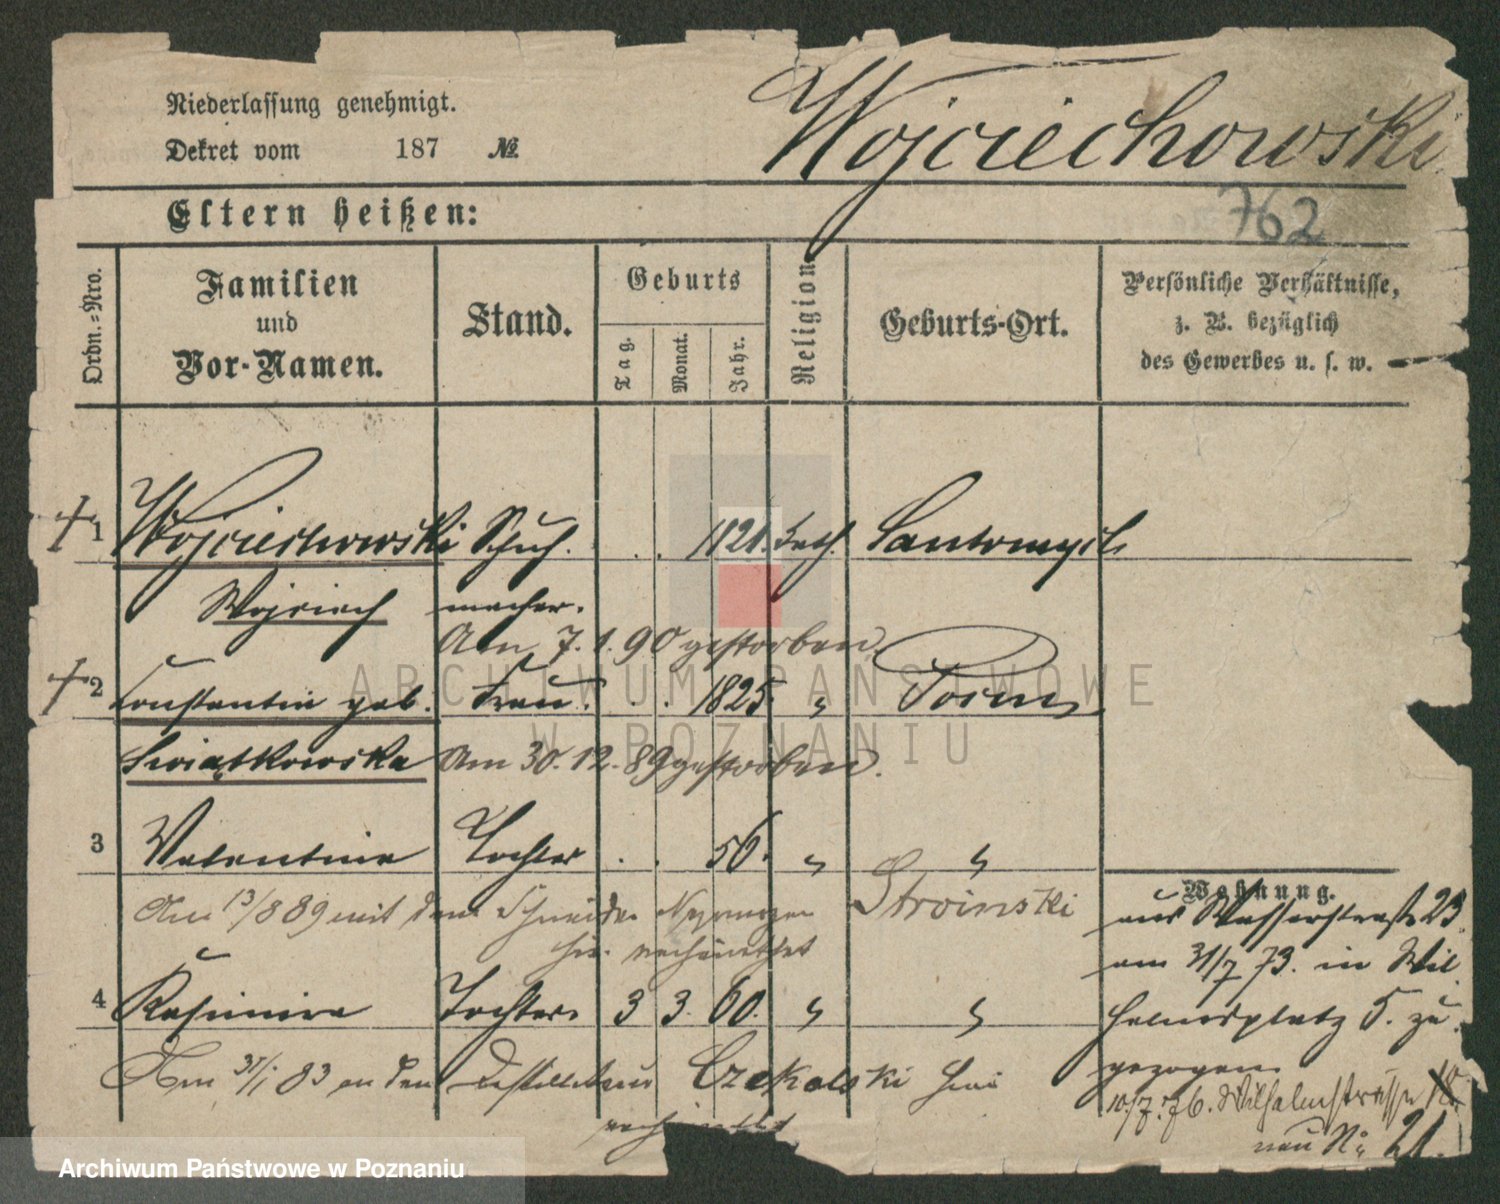 Wojciechowski
Niederlassung genehmigt.
Dekret vom 187 №
Eltern heißen:
762
Ordn.-Nro.
Familien
und
Vor-Namen.
Stand.
Geburts
Tag.
Monat.
Jahr.
Religion
Geburts-Ort.
Persönliche Verhältnisse,
z. B. bezüglich
des Gewerbes u. s. w.
1 Wojciechowski Schuh- 1821. kath. Santomysl
Wojciech macher.
Am 7. 1. 90 gestorben.
2 Constantia geb. Frau. 1825. " Posen
Swiątkowska Am 30. 12. 89 gestorben.
3 Valentine Tochter . . 56. " "
Wohnung.
Am 13/8 89 mit dem Schneider Stroinski
hier verheirathet
aus Wasserstraße 23.
am 31/7 73. in Wil
4 Kasimira Tochter 3 3. 60. " "
helmsplatz 5. zu
gezogen.
Am 31/1 83 an den Destillateur Czekalski hier
verheirathet
10./7. 76. Wilhelmstrasse 18.
neu No 21.
ARCHIWUM PAŃSTWOWE
W POZNANIU
Archiwum Państwowe w Poznaniu